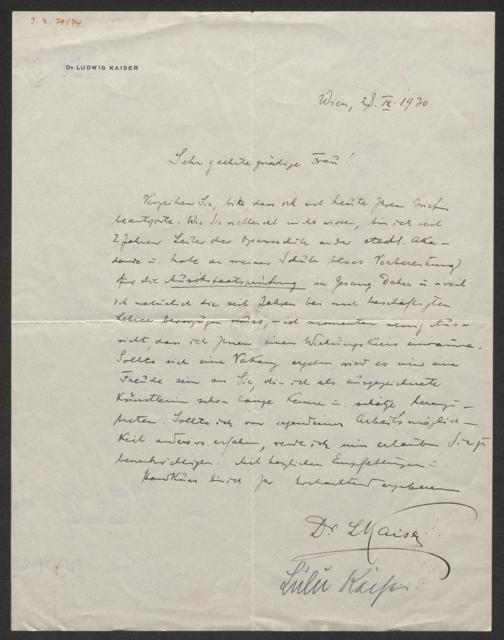 J. N. 79974
Dr. LUDWIG KAISER
Wien, 28. IX. 1930.
Sehr geehrte gnädige Frau!
Verzeihen Sie, bitte dass ich erst heute Ihren Brief
beantworte. Wie Sie vielleicht nicht wissen, bin ich seit
2 Jahren Leiter der Opernschule an der städt. Aka-
demie u. habe an meiner Schule bloss Vorbereitung
für die Musikstaatsprüfung in Gesang. Daher u. weil
ich natürlich die seit Jahren bei mir beschäftigten
Lehrer bevorzugen muss, – ist momentan wenig Aus-
sicht, dass ich Ihnen einen Wirkungskreis einräume.
Sollte sich eine Vakanz ergeben, wird es mir eine
Freude sein an Sie, die ich als ausgezeichnete
Künstlerin schon lange kenne u. schätze heranzu-
treten. Sollte ich von irgendeiner Arbeitsmöglich-
keit anderswo erfahren, werde ich mir erlauben Sie zu
benachrichtigen. Mit herzlichen Empfehlungen u.
Handkuss bin ich Ihr hochachtend ergebener
Dr LKaiser
Lulu Kaiser